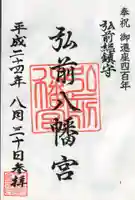 奉祝 御遷座四百年
弘前総鎮守
弘前八幡宮
平成二十四年 八月二十日参拝